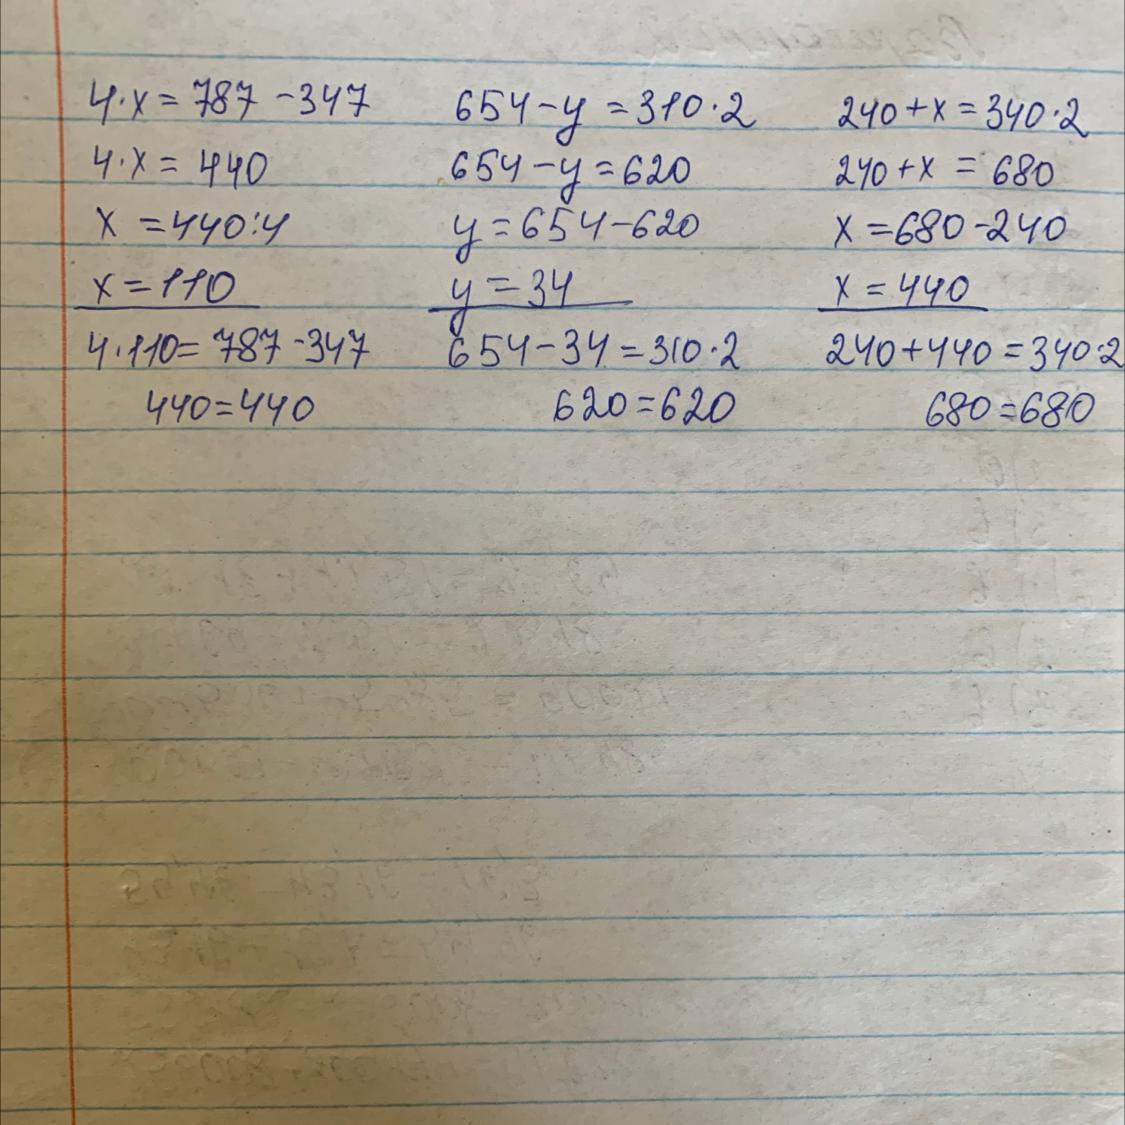 4·x = 787 - 347
4·x = 440
x = 440:4
x = 110
4·110 = 787 - 347
440 = 440
654 - y = 310·2
654 - y = 620
y = 654 - 620
y = 34
654 - 34 = 310·2
620 = 620
240 + x = 340·2
240 + x = 680
x = 680 - 240
x = 440
240 + 440 = 340·2
680 = 680